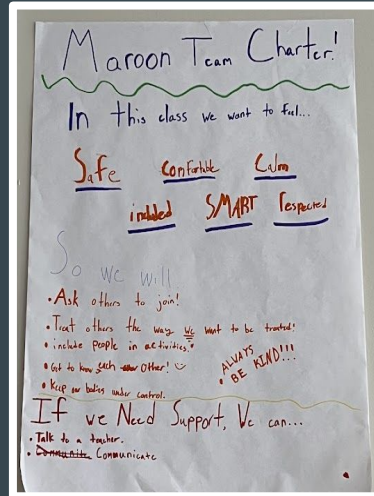 Maroon Team Charter!
In this class we want to feel...
Safe Comfortable Calm
included SMART respected
So we will
• Ask others to join!
• Treat others the way we want to be treated!
• include people in activities.
• Get to know each other! ☺
• ALWAYS BE KIND!!!
• Keep our bodies under control.
If we Need Support, We can...
• Talk to a teacher.
• Communicate